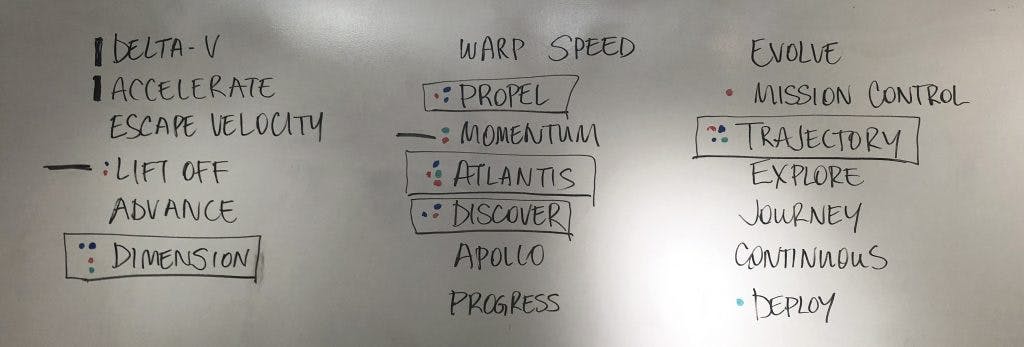 DELTA-V
ACCELERATE
ESCAPE VELOCITY
LIFT OFF
ADVANCE
DIMENSION
WARP SPEED
PROPEL
MOMENTUM
ATLANTIS
DISCOVER
APOLLO
PROGRESS
EVOLVE
MISSION CONTROL
TRAJECTORY
EXPLORE
JOURNEY
CONTINUOUS
DEPLOY